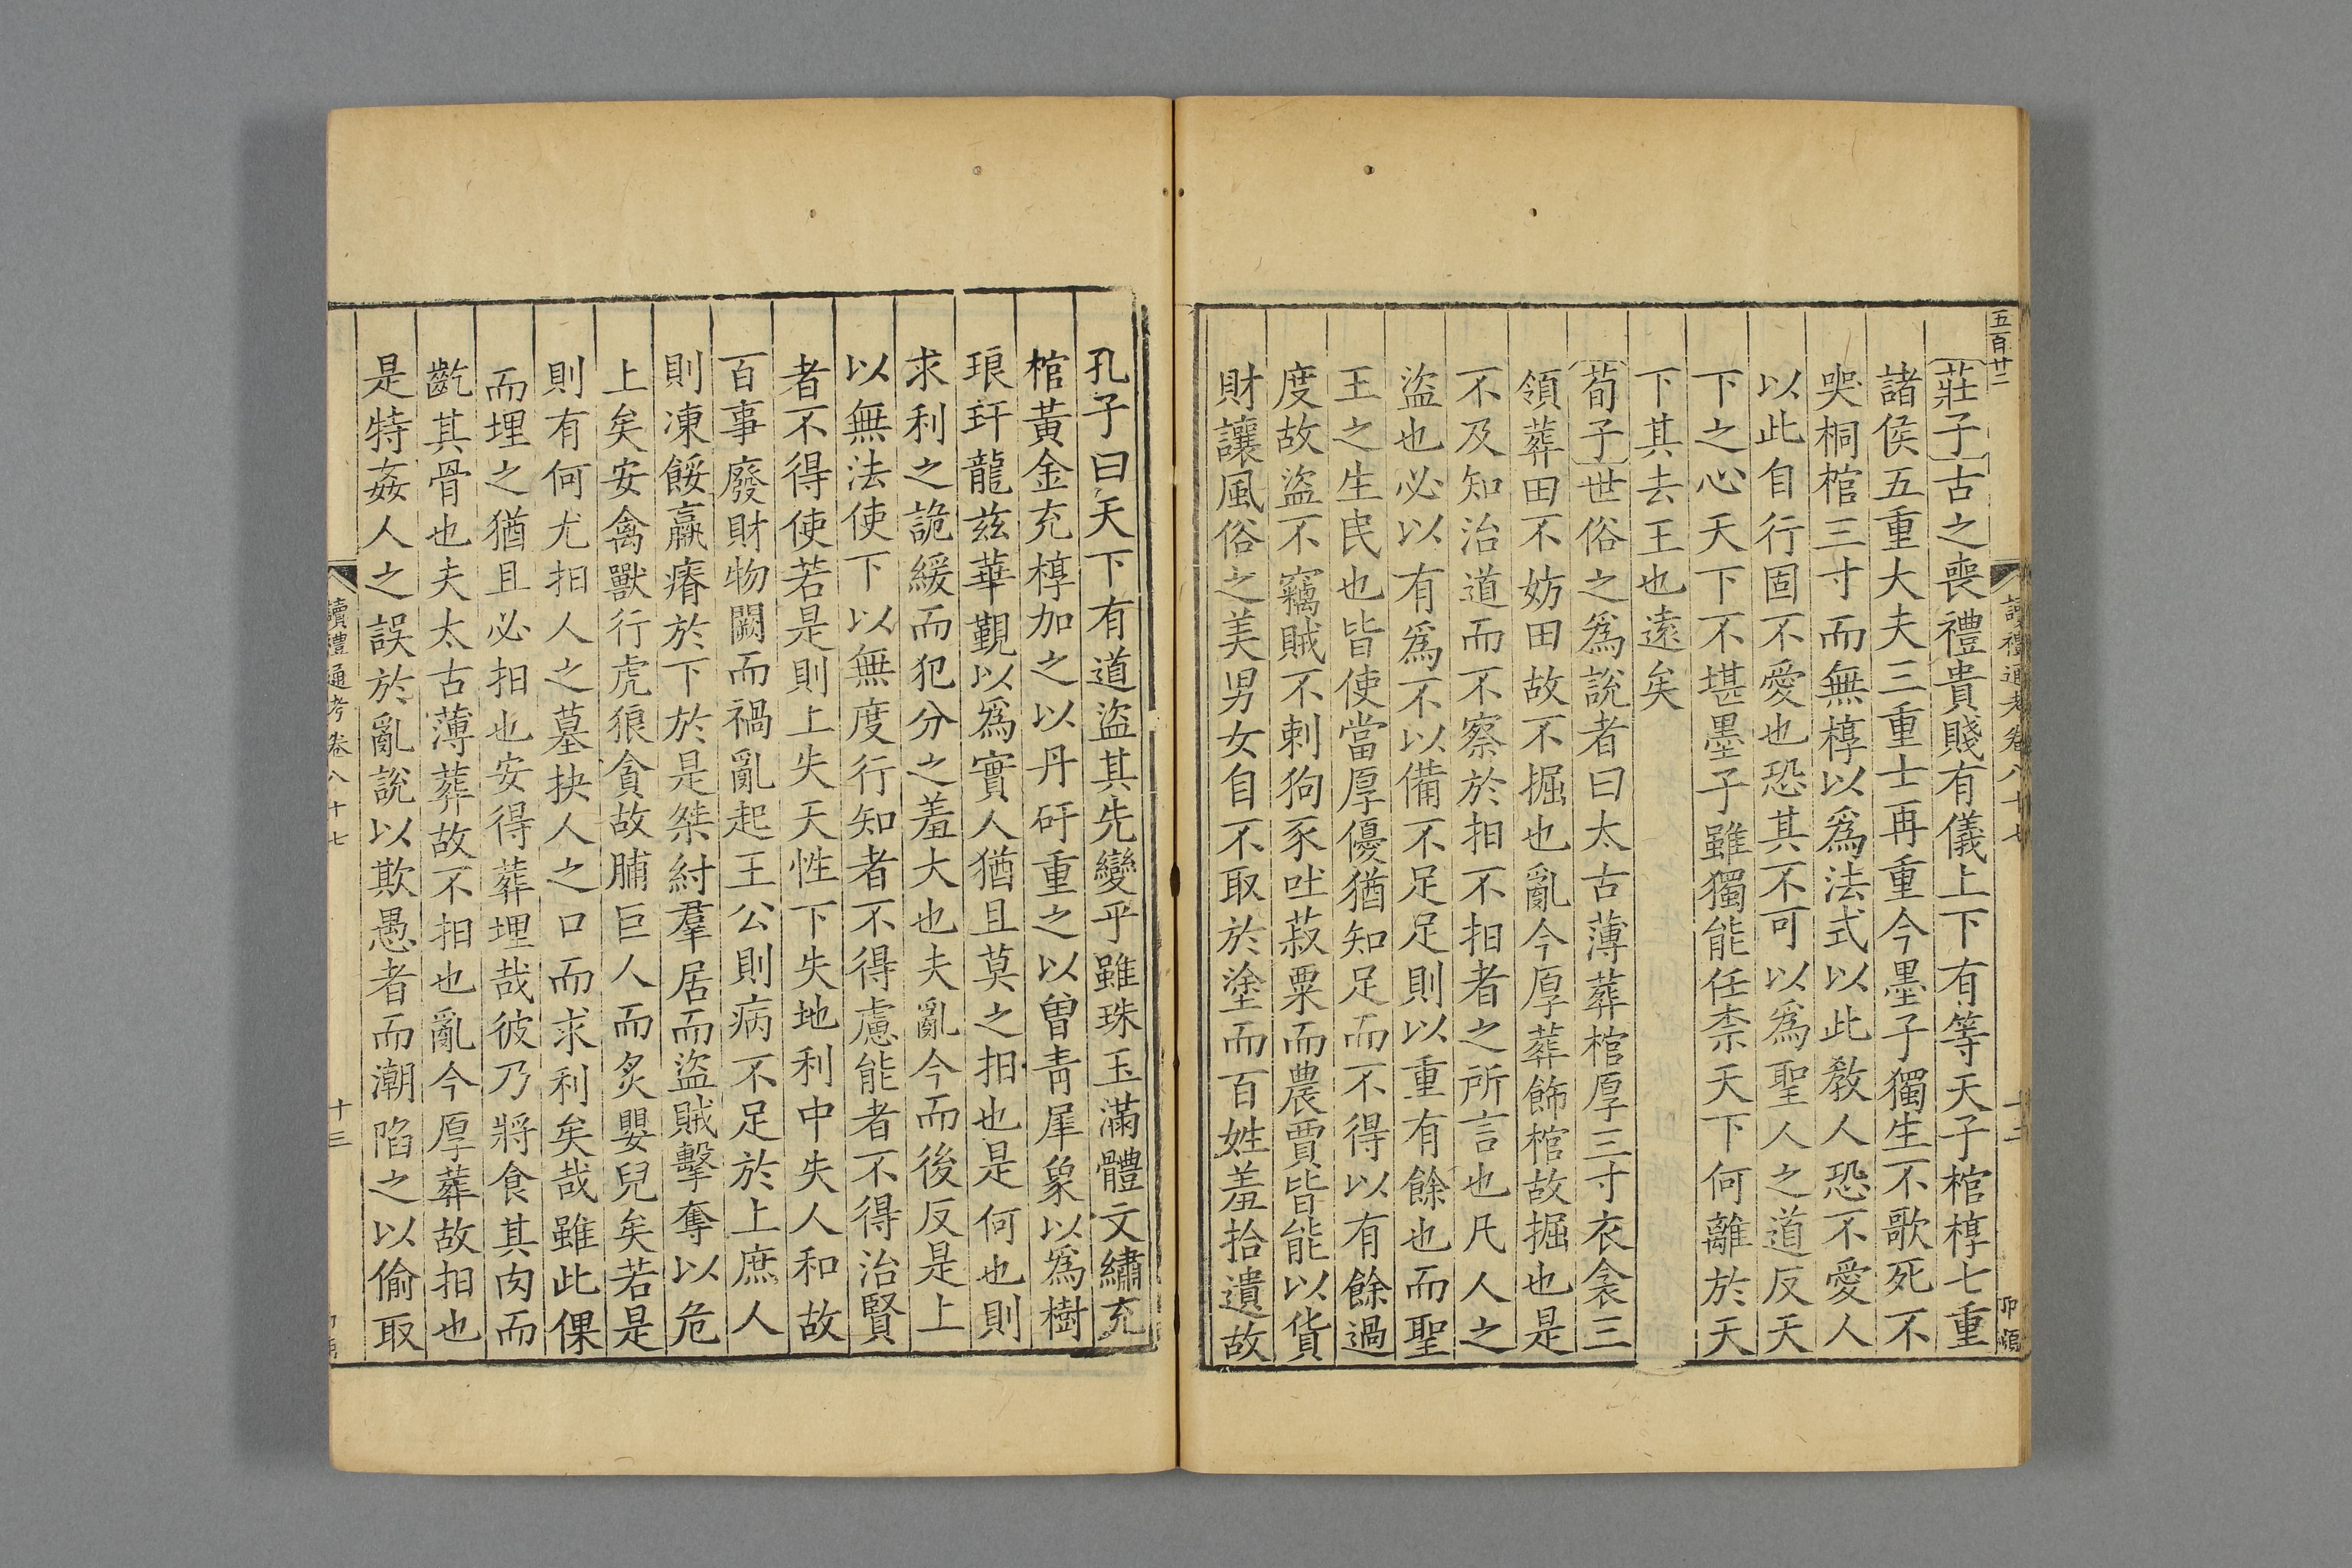 五百廿二
讀禮通考卷八十七
十二
莊子古之喪禮貴賤有儀上下有等天子棺椁七重
諸侯五重大夫三重士再重今墨子獨生不歌死不
哭桐棺三寸而無椁以爲法式以此敎人恐不愛人
以此自行固不愛也恐其不可以爲聖人之道反天
下之心天下不堪墨子雖獨能任柰天下何離於天
下其去王也遠矣
荀子世俗之爲說者曰太古薄葬棺厚三寸衣衾三
領葬田不妨田故不掘也亂今厚葬飾棺故掘也是
不及知治道而不察於抇不抇者之所言也凡人之
盜也必以有爲不以備不足足則以重有餘也而聖
王之生民也皆使當厚優猶知足而不得以有餘過
度故盜不竊賊不刺狗豕吐菽粟而農賈皆能以貨
財讓風俗之美男女自不取於塗而百姓羞拾遺故
孔子曰天下有道盜其先變乎雖珠玉滿體文繡充
棺黃金充椁加之以丹矸重之以曾靑犀象以爲樹
琅玕龍兹華覲以爲實人猶且莫之抇也是何也則
求利之詭緩而犯分之羞大也夫亂今而後反是上
以無法使下以無度行知者不得慮能者不得治賢
者不得使若是則上失天性下失地利中失人和故
百事廢財物闕而禍亂起王公則病不足於上庶人
則凍餒羸瘠於下於是桀紂羣居而盜賊擊奪以危
上矣安禽獸行虎狼貪故脯巨人而炙嬰兒矣若是
則有何尤抇人之墓抉人之口而求利矣哉雖此倮
而埋之猶且必抇也安得葬埋哉彼乃將食其肉而
齕其骨也夫太古薄葬故不抇也亂今厚葬故抇也
是特姦人之誤於亂說以欺愚者而潮陷之以偷取
讀禮通考卷八十七
十三